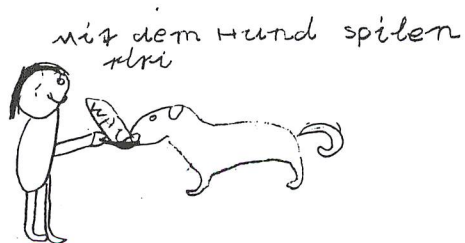 mit dem Hund spilen